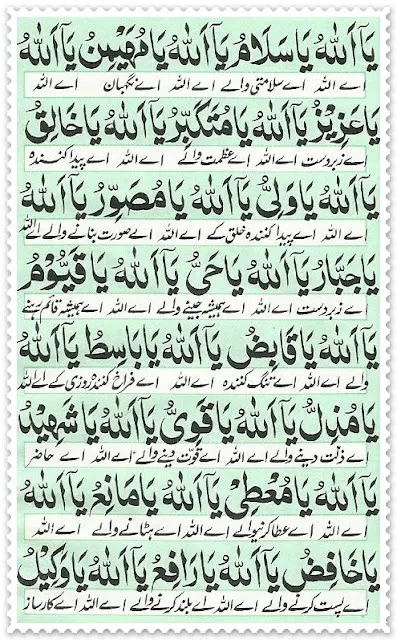 يَآ اَللهُ يَا سَلَامُ يَآ اَللهُ يَا مُهَيْمِنُ يَآ اَللهُ
اے اللہ اے سلامتی والے اے اللہ اے نگہبان اے اللہ
يَا عَزِيْزُ يَآ اَللهُ يَا مُتَكَبِّرُ يَآ اَللهُ يَا خَالِقُ
اے زبردست اے اللہ اے عظمت والے اے اللہ اے پیدا کنندہ
يَآ اَللهُ يَا وَلِيُّ يَآ اَللهُ يَا مُصَوِّرُ يَآ اَللهُ
اے اللہ اے پیدا کنندہ خلق کے اے اللہ اے صورت بنانے والے اے اللہ
يَا جَبَّارُ يَآ اَللهُ يَا حَيُّ يَآ اَللهُ يَا قَيُّوْمُ
اے زبردست اے اللہ اے ہمیشہ جینے والے اے اللہ اے ہمیشہ قائم رہنے
يَآ اَللهُ يَا قَابِضُ يَآ اَللهُ يَا بَاسِطُ يَآ اَللهُ
والے اے اللہ اے تنگ کنندہ اے اللہ اے فراخ کنندہ روزی کے اے اللہ
يَا مُذِلُّ يَآ اَللهُ يَا قَوِيُّ يَآ اَللهُ يَا شَهِيْدُ
اے ذلت دینے والے اے اللہ اے قوت دینے والے اے اللہ اے حاضر
يَآ اَللهُ يَا مُعْطِيْ يَآ اَللهُ يَا مَانِعُ يَآ اَللهُ
اے اللہ اے عطا کرنیوالے اے اللہ اے ہٹانے والے اے اللہ
يَا خَافِضُ يَآ اَللهُ يَا رَافِعُ يَآ اَللهُ يَا وَكِيْلُ
اے پست کرنے والے اے اللہ اے بلند کرنے والے اے اللہ اے کارساز